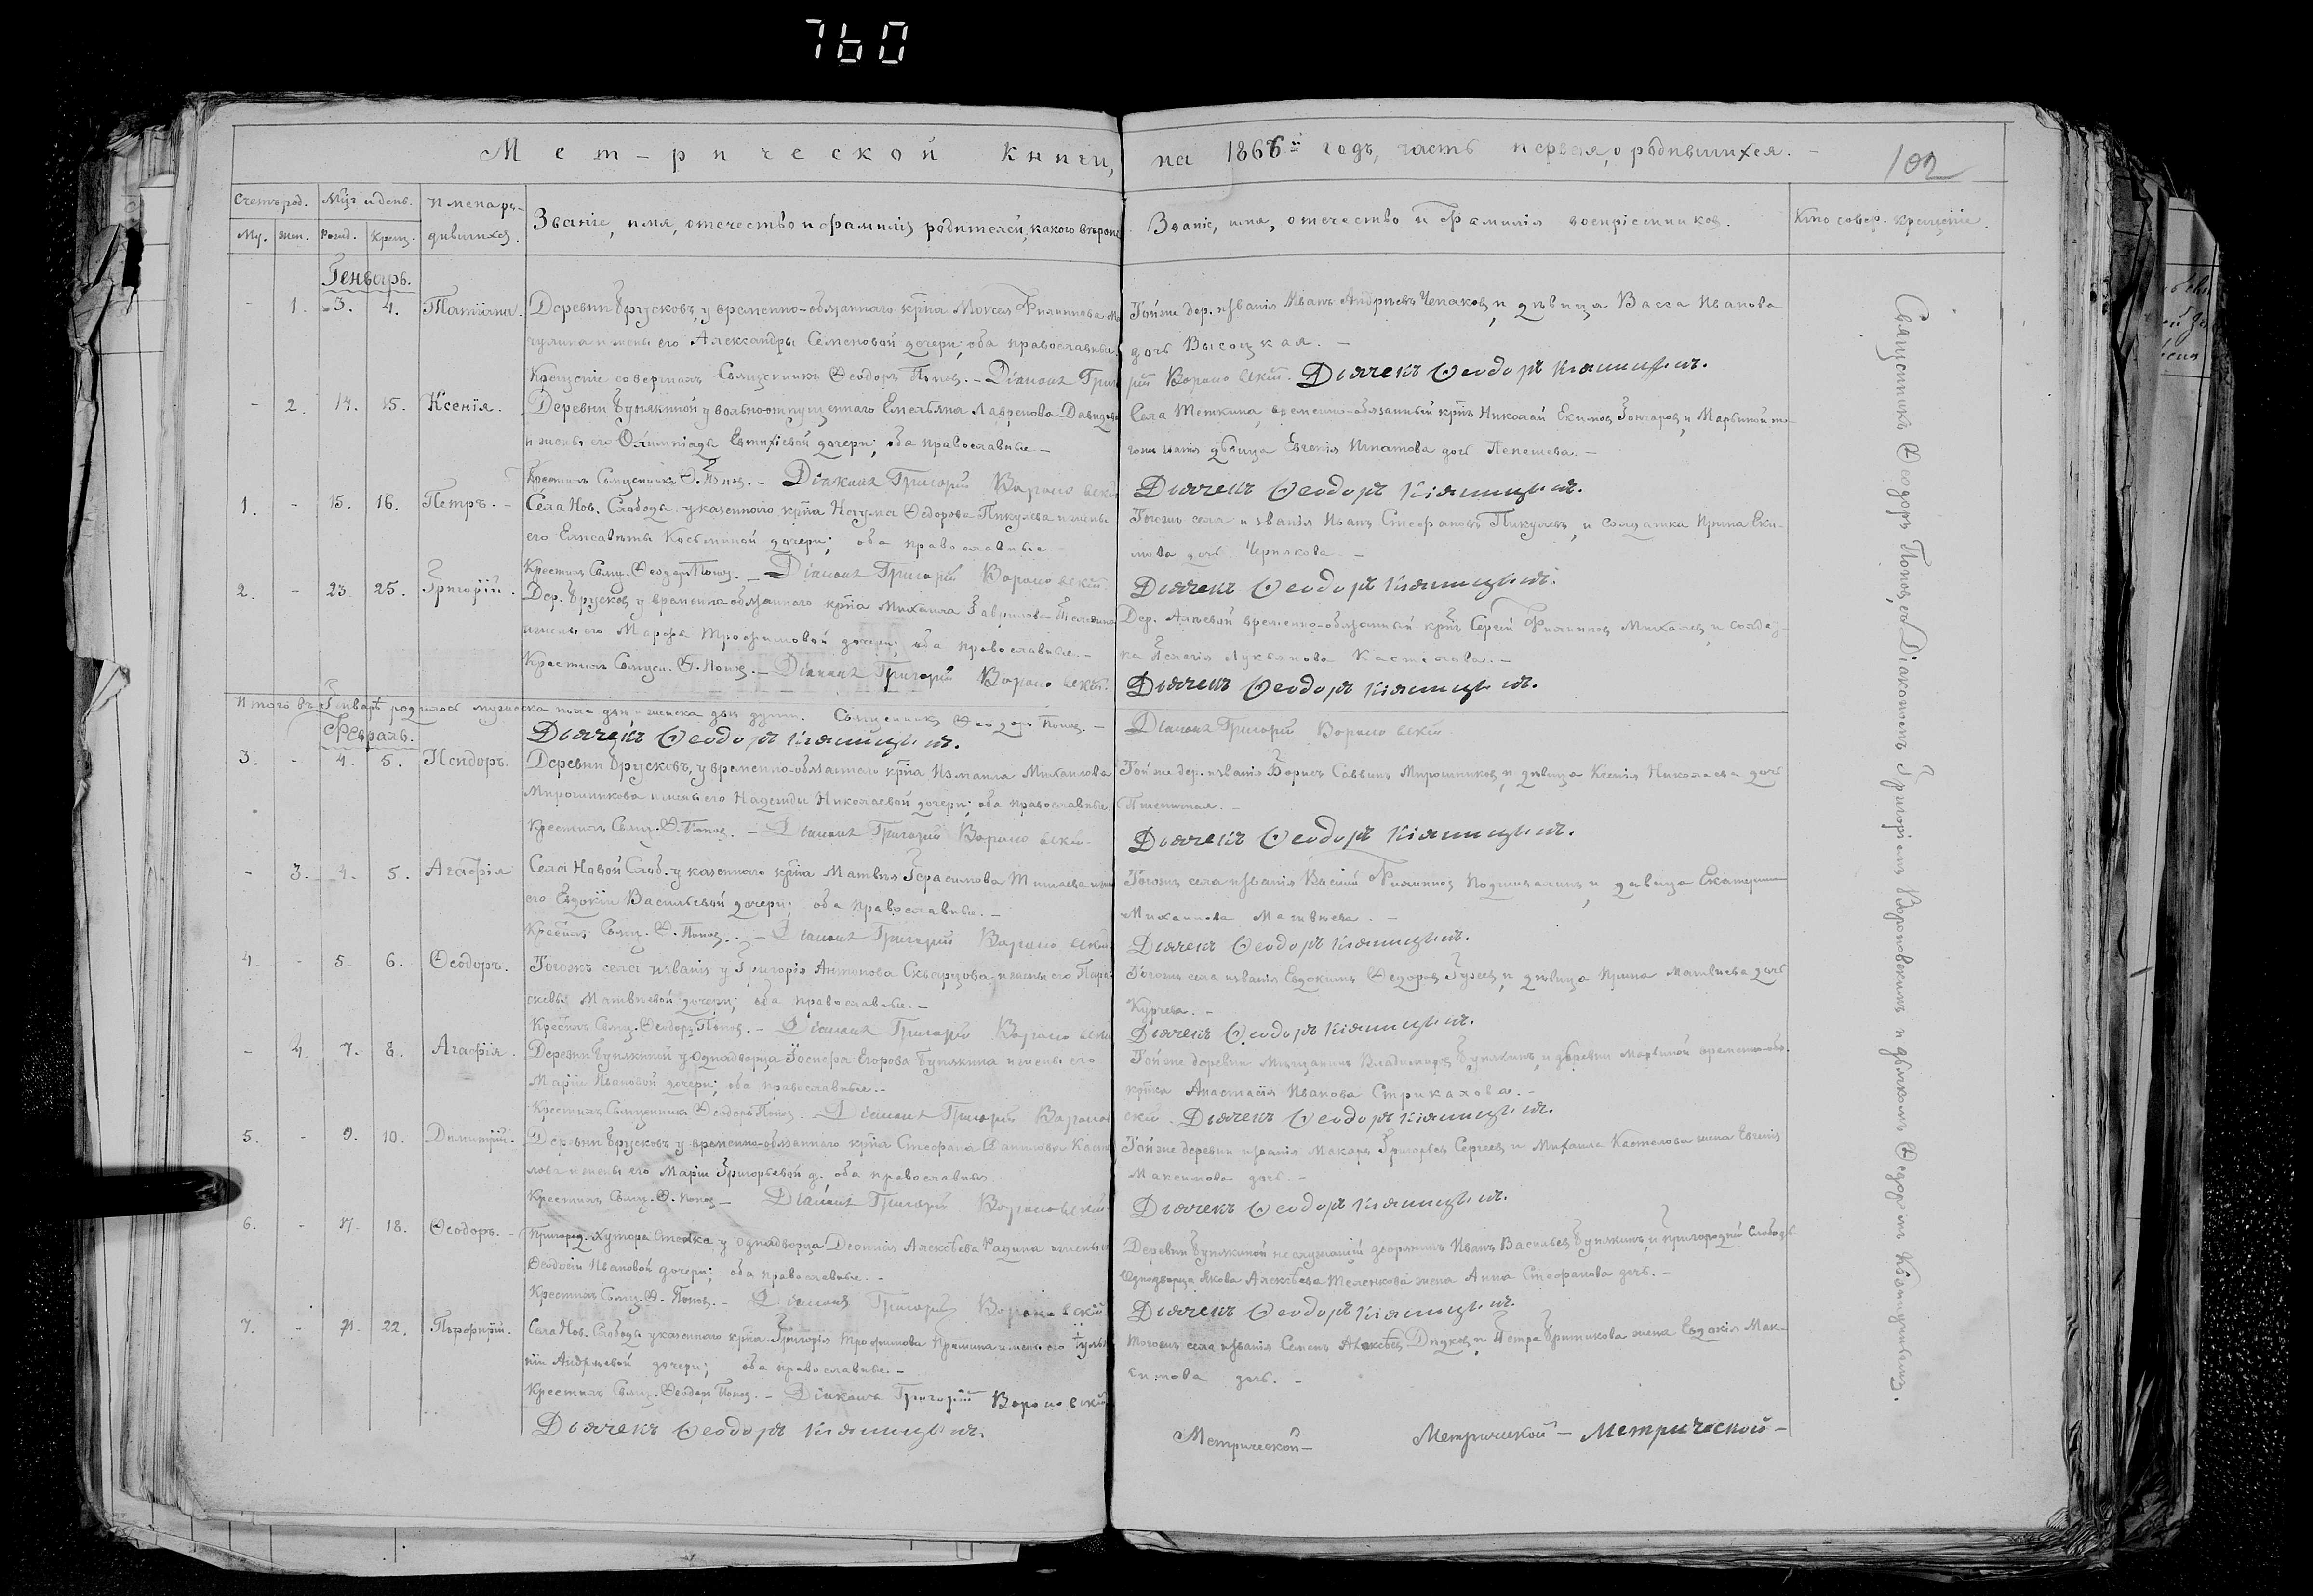 760
Метрической книги, на 1866й годъ, часть первая, о родившихся.
102
Счетъ род. Мѣц. и день. Имена ро-
Му. жен. Рожд. Крещ. дившихся.
Званіе, имя, отечество и фамилія родителей, какого вѣроис
Званіе, имя, отечество и фамилія воспріемниковъ.
Кто совер. крещеніе.
Генварь.
- 1. 3. 4. Татіана. Деревни Брусковъ, у временно-обязаннаго кр҃на Моисея Филиппова
чулина и жены его Александры Семеновой дочери; оба православные.
Крещеніе совершалъ Священникъ Ѳеодоръ Поповъ. - Діаконъ Григо
Тойже дер. и званія Иванъ Андреевъ Чепаковъ, и дѣвица Васса Иванова
дочь Высоцкая. -
рій Вороновскій. Дьячекъ Ѳеодоръ
- 2. 14. 15. Ксенія. Деревни Бунякиной у вольноотпущеннаго Емельяна Лавренова Давидова
и жены его Олимпіады Евтихіевой дочери; оба православные -
Крестилъ Священникъ Ѳ. Поповъ. - Діаконъ Григорій Вороновскій
Села Теткина, временно-обязанный кр҃нъ Николай Екимовъ Гончаровъ, и Марьиной то-
гоже званія дѣвица Евгенія Игнатова дочь Лепешева. -
Дьячекъ Ѳеодоръ
1. - 15. 16. Петръ. - Села Нов. Слободы. у казеннаго кр҃на Наума Ѳедорова Пикулева и жены
его Елисаветы Косьминой дочери; оба православные. -
Крестилъ Свящ. Ѳеодоръ Поповъ. - Діаконъ Григорій Вороновскій.
Тогожъ села и званія Иванъ Стефановъ Пикулевъ, и солдатка Ирина Еки-
мова дочь Чернякова -
Дьячекъ Ѳеодоръ
2. - 23. 25. Григорій. Дер. Брусковъ у временно обязаннаго кр҃на Михаила Гаврилова
и жены его Марѳы Трофимовой дочери; оба православные. -
Крестилъ Священ. Ѳ. Поповъ. - Діаконъ Григорій Вороновскій.
Дер. временно-обязанный кр҃нъ Сергій Филипповъ Михалевъ, и солдат-
ка Пелагія Лукьянова -
Дьячекъ Ѳеодоръ
Итого въ Генварѣ родилось мужеска пола двѣ и женска двѣ души. Священникъ Ѳеодоръ Поповъ. -
Дьячекъ Ѳеодоръ
Діаконъ Григорій Вороновскій
Февраль.
3. - 4. 5. Исидоръ. Деревни Брусковъ, у временно-обязаннаго кр҃на Измаила Михайлова
Мирошникова и жены его Надежды Николаевой дочери; оба православные.
Крестилъ Свящ. Ѳ. Поповъ. - Діаконъ Григорій Вороновскій.
Тойже дер. и званія Борисъ Саввинъ Мирошниковъ, и дѣвица Ксенія Николаева дочь
Дьячекъ Ѳеодоръ
- 3. 4. 5. Агафія Села Новой Слоб. у казеннаго кр҃на Матвѣя Герасимова и же
его Евдокіи Васильевой дочери; оба православные. -
Крестилъ Свящ. Ѳ. Поповъ. - Діаконъ Григорій Вороновскій.
Тогожъ села и званія Василій Филипповъ и дѣвица Екатерина
Михайлова -
Дьячекъ Ѳеодоръ
4. - 5. 6. Ѳеодоръ. Тогожъ села и званія у Григорія Антонова Скварцова и жены его Пара-
скевы Матвѣевой дочери; оба православные. -
Крестилъ Свящ. Ѳеодоръ Поповъ. - Діаконъ Григорій Вороновскій
Тогожъ села и званія Евдокимъ Ѳедоровъ Гузеевъ, и дѣвица Ирина Матвѣева дочь
Курчева. -
Дьячекъ Ѳеодоръ
- 4. 7. 8. Агафія. Деревни Бунякиной у Однодворца Іосифа Егорова Бунякина и жены его
Маріи Ивановой дочери; оба православные. -
Крестилъ Священникъ Ѳеодоръ Поповъ. - Діаконъ Григорій Воронов
Тойже деревни Мѣщанинъ Владимиръ Бунякинъ, и деревни Марьиной временно-обя.
кр҃нка Анастасія Иванова Стрикахова. -
скій. Дьячекъ Ѳеодоръ
5. - 9. 10. Димитрій. Деревни Брусковъ у временно-обязаннаго кр҃на Стефана Данилова
лова и жены его Маріи Григорьевой д., оба православные
Крестилъ Свящ. Ѳ. Поповъ - Діаконъ Григорій Вороновскій
Тойже деревни и званія Макаръ Григорьевъ Сергеевъ и Михаила жена Евгенія
Максимова дочь. -
Дьячекъ Ѳеодоръ
6. - 17. 18. Ѳеодоръ. - Пригород. Хутора у Однодворца Деонисія Алексѣева и жены его
Ѳеодосіи Ивановой дочери; оба православные. -
Крестилъ Свящ. Ѳ. Поповъ. - Діаконъ Григорій Вороновскій
Деревни Бунякиной неслужащій дворянинъ Иванъ Васильевъ Бунякинъ, и пригородней Слободы
Однодворца Якова Алексѣева жена Анна Стефанова дочь. -
Дьячекъ Ѳеодоръ
7. - 21. 22. Порфирій. Села Нов. Слободы у казеннаго кр҃на Григорія Трофимова и жены его Іульіа-
ніи Андреевой дочери; оба православные. -
Крестилъ Свящ. Ѳеодоръ Поповъ. - Діаконъ Григорій Вороновскій
Дьячекъ Ѳеодоръ
Тогожъ села и званія Семенъ Алексѣевъ и Петра жена Евдокія Мак-
симова дочь. -
Метрической - Метрической - Метрической -
Священникъ Ѳеодоръ Поповъ, съ Діакономъ Григоріемъ Вороновскимъ и дьячкомъ Ѳеодоромъ